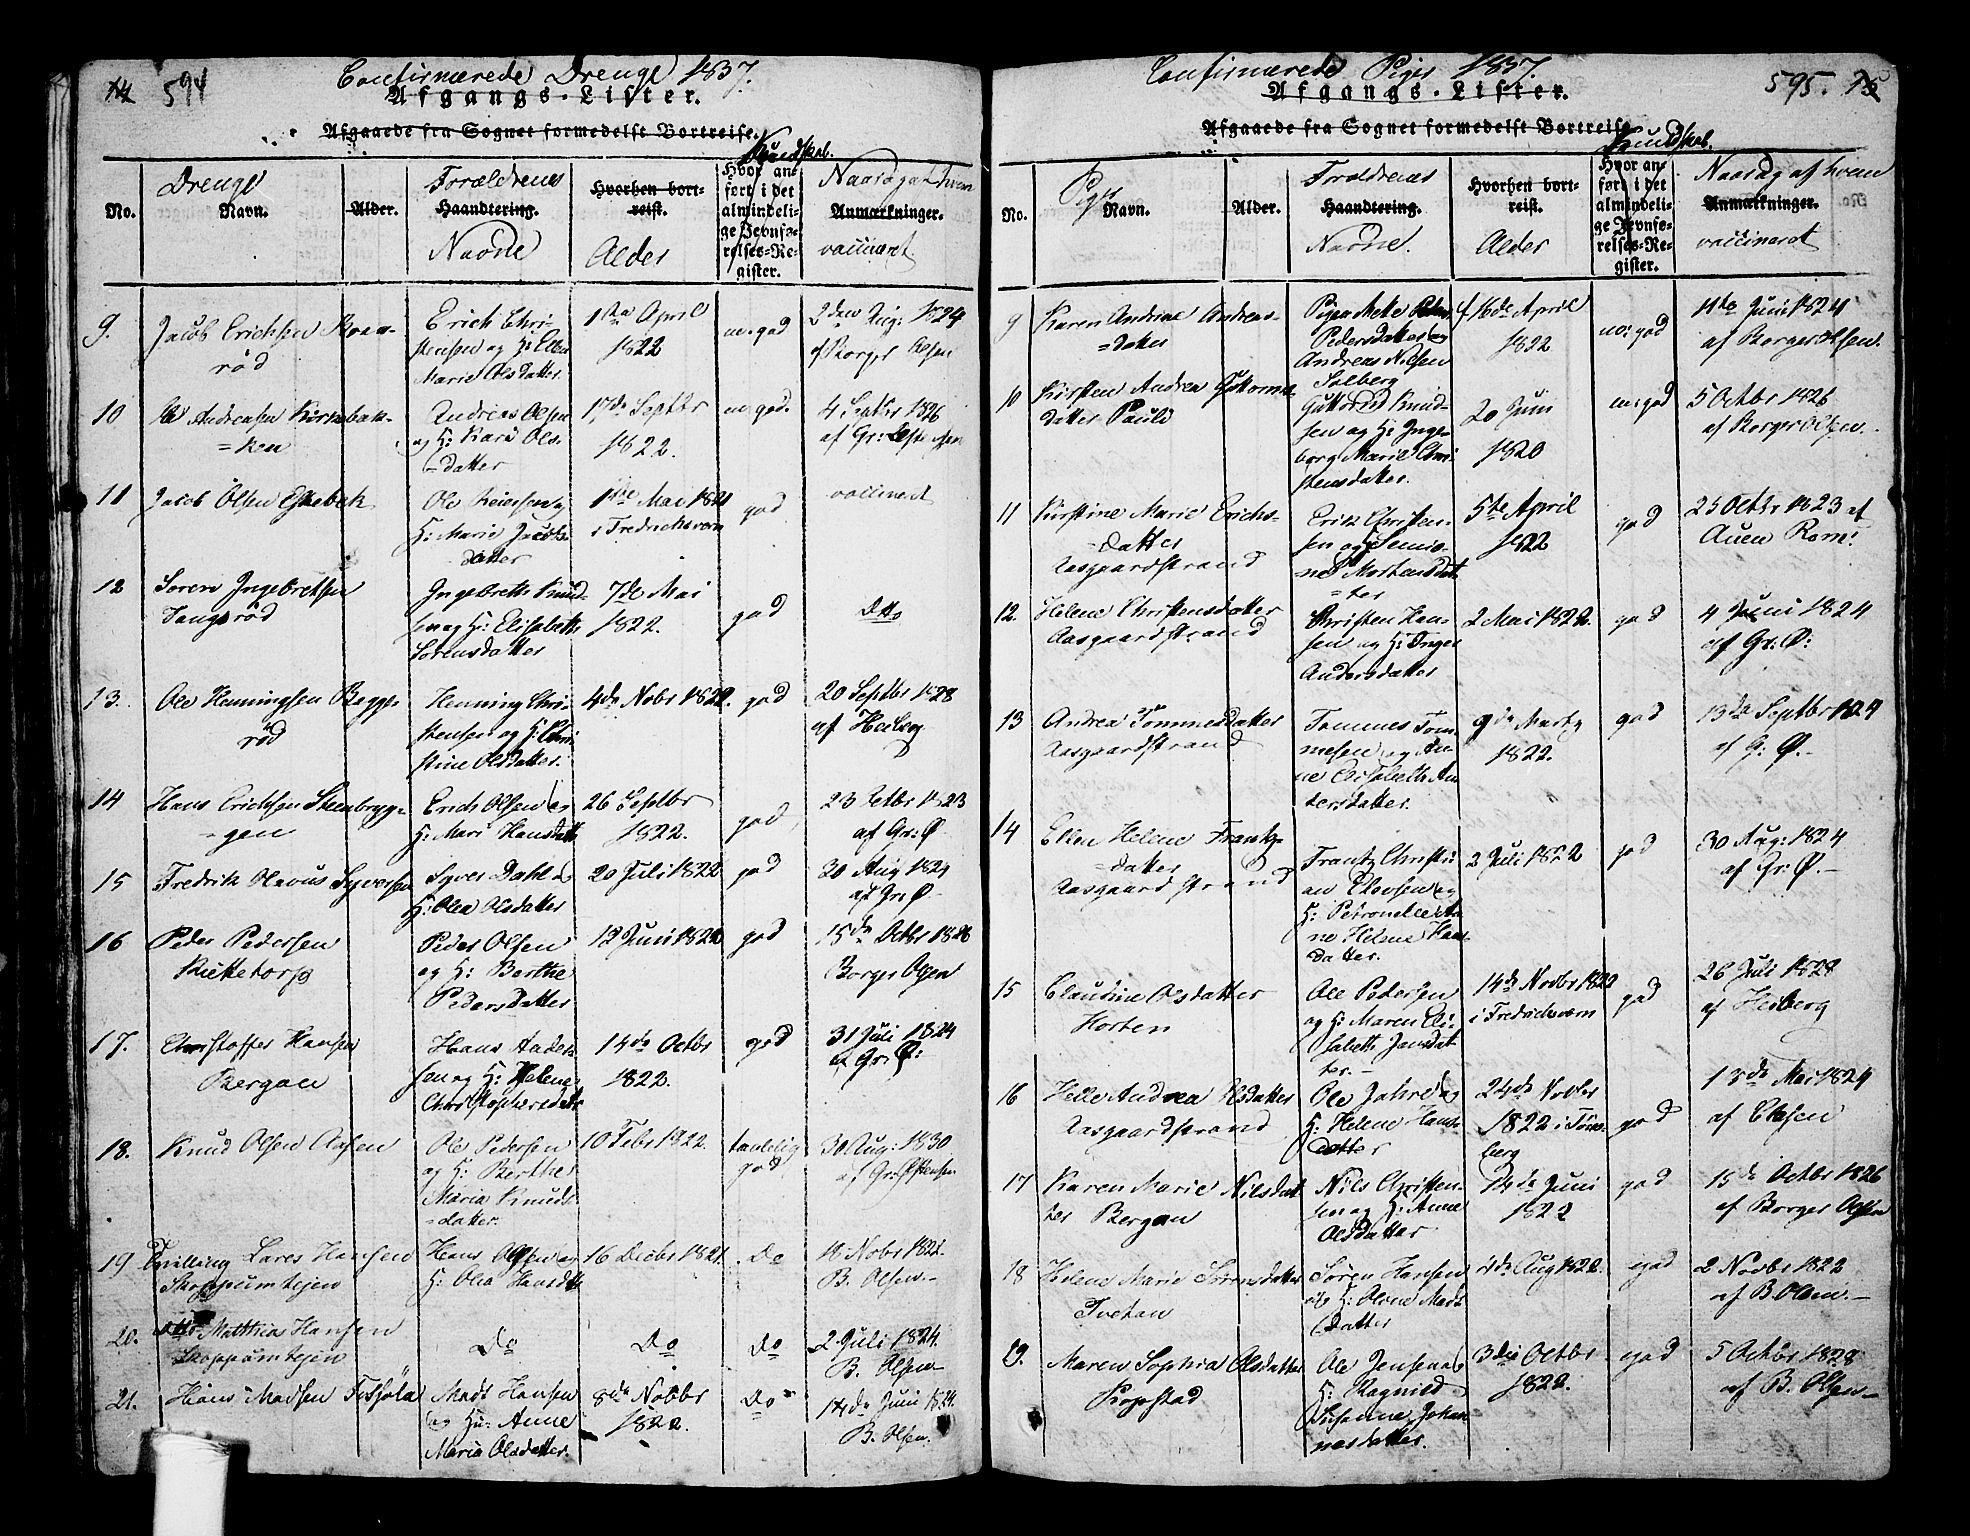 14 594
Confirmerede Drenge 1837.
Afgangs-Lister.
Afgaaede fra Sognet formedelst Bortreise.
Kundskab.
No.
Drenge
Navn.
Alder.
Forældrenes
Haandtering.
Navne
Hvorhen bort-
reist.
Alder
Hvor an-
ført i det
almindeli-
ge Jevnfø-
relses-Re-
gister.
Naar og af hvem
Anmærkninger.
vaccineret
9.
Jacob Erichsen
rød
Erich Chri-
stensen og H: Ellen
Marie Olsdatter
1ste April
1822
m: god
2den Aug: 1824
af Borger Olsen
10
Andreasen Kirkebak-
=ken
Andreas Olsen
og H: Kari Ols-
=datter
17de Septbr
1822.
m: god.
4 Septbr 1826
af Gr:
11
Jacob Olsen Eskebek
Ole Reiersen og
H: Marie Jacobs-
datter
1ste Mai 1821
i Fredriksværn
god
vaccineret
12
Søren Ingebretsen
Tangsrød
Ingebrett Knud-
sen og H: Elisabeth
Sørensdatter
7de Mai
1822.
god
Dto
13.
Ole Henningsen Bagge-
rød
Henning Chri-
stensen og H: Chri-
stine Olsdatter.
4de Nobr 1822.
god
20 Septbr 1828
af Heiberg
14
Hans Erichsen Steenbryg-
=gen
Erich Olsen og
H: Mari Hansdatt
26 Septbr
1822.
god
23 Octbr 1823
af Gr: Ø.
15
Fredrik Olavus Syversen
Syver Dahl og
H: Olea Olsdatter
20 Juli 1822
god
30 Aug 1824
af Gr: Ø.
16
Peder Pedersen
Rickettorp
Peder Olsen
og H: Berthe
Pedersdatter
12 Juni 1822
god
15de Octbr 1826
Borger Olsen
17.
Christoffer Hansen
Bergan
Hans Anders
sen og H: Helene
Christophersdatr
14de Octbr
1822.
god
31 Juli 1824
af Gr: Ø:
18.
Knud Olsen Aasen
Ole Pedersen
og H: Berthe
Maria Knuds-
=datter.
10 Febr 1822.
taalelig
god
30 Aug: 1830
af Gr: Østensen
19
Tvilling Lars Hansen
Skoppumtejen
Hans Olsen og
H: Olea Hansdtr
16 Decbr 1821.
Do
18 Nobr 1822.
B. Olsen.-
20.
Dto Matthia Hansen
Skoppumtejen
Do
Do
Do
2 Juli 1824.
B. Olsen
21.
Hans Madsen
Mads Hansen
og H: Anne
Maria Olsdatter.
8de Nobbr
1822.
Do
14de Juni 1824.
B. Olsen.
595. 15
Confirmerede Piger 1837.
Afgangs-Lister.
Afgaaede fra Sognet formedelst Bortreise.
Kundskab.
No.
Piger
Navn.
Alder.
Forældrenes
Haandtering.
Navne.
Hvorhen bort-
reist.
Alder
Hvor an-
ført i det
almindeli-
ge Jevnfø-
relses-Re-
gister.
Naar og af hvem
Anmærkninger.
vaccineret
9
Karen Andrine Andreas-
=datter
Pigen Mette
Pedersdatter og
Andreas Nilsen
Solberg
16de April
1822
m: god
11de Juni 1824
af Borger Olsen.
10
Kirsten Andrea Guttorms-
datter Pauli
Guttorm Knud-
sen og H: Inge-
borg Marie Chri-
stensdatter.
20 Juni
1820
m: god
5 Octbr 1826
af Borger Olsen.
11
Kirstine Marie Erichs-
=datter
Aasgaardstrand
Erik Christen-
sen og
Mortensdat
=ter
5te April
1822
god
25 Octbr 1823 af
12.
Helene Christensdatter
Aasgaardstrand
Christen Han-
sen og H: Inger
Andersdatter
2 Mai 1822.
god
4 Juni 1824
af Gr: Ø:
13
Andrea Tommesdatter
Aasgaardstrand
Tommes Tom-
mesen og An-
ne Elisabeth An-
dersdatter.
9de Marts
1822.
god
13de Septbr 1824
af G: Ø.-
14
Ellen Helene Frantz-
=datter
Aasgaardstrand
Frantz Christi-
an og
H: Petronelle An-
ne Helene Hans-
datter.
2 Juli 1822
god
30 Aug: 1824
af Gr: Ø.-
15
Claudine Olsdatter
Horten
Ole Pedersen
og H: Maren Eli-
sabeth Jansdat-
ter.-
14de Novbr 1822
i Fredriksværn
god
26 Juli 1828
af Heiberg
16
Helle Andrea Olsdatter
Aasgaardstrand
Ole Jahre og
H: Helene Hans-
datter
24de Novbr
1822 i Tøns-
berg
god
13de Mai 1824
af
17
Karen Marie Nilsdat
ter Bergan
Nils Christen-
sen og H: Anne
Olsdatter
14de Juni
1822
god
15de Octbr 1826
af Borger Olsen
18
Helene Marie Sørensdatter
Tvetan
Søren Hansen
og H: Olene Mads
datter
4de Aug 1822.
god
2 Novbr 1822
af B. Olsen.-
19.
Maren Sophia Olsdatter
Kopstad
Ole Jensen og
H: Ragnild
Susanne Johan
nesdatter.
3die Octbr
1822.
god
5 Octbr 1828
af B. Olsen-